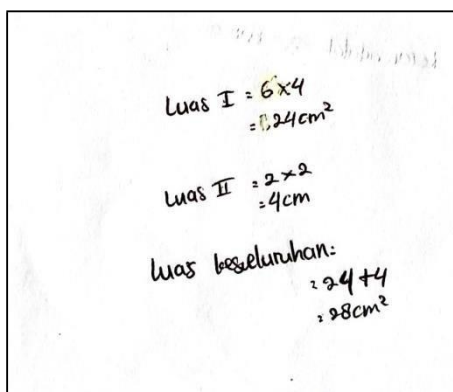 Luas I = 6 x 4
= 24 cm²
Luas II = 2 x 2
= 4 cm
luas keseluruhan:
= 24 + 4
= 28 cm²